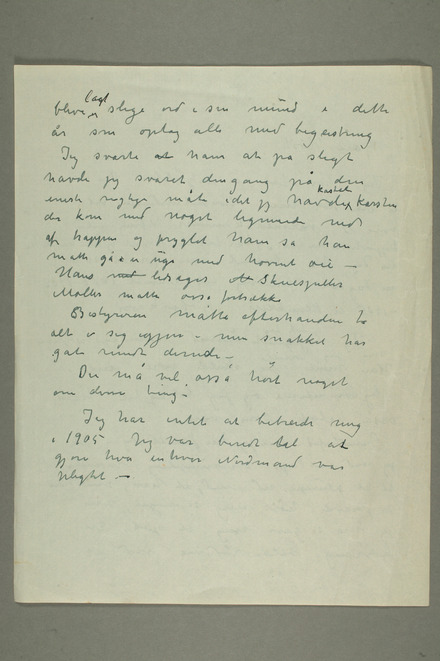 blive lagt slige ord i sin mund i dette
år som optog alle med begeistring
Jeg svarte at ham at på sligt
havde jeg svaret dengang på den
eneste måte idet jeg havde kastet Karsten
der kom med noget lignende ned
af trappen og pryglet ham så han
måtte gå en uge med hovent øie –
Hans ledsager Skuespiller
Møller måtte også fortrække
Bestyreren måtte efterhånden ta
alt i sig igjen – men snakket har
gåt rundt dernede –
Du må vel også hørt noget
om denne ting –
Jeg har intet at bebreide mig
i 1905 Jeg var beredt til at
gjøre hva enhver Nordmand var
pligt –